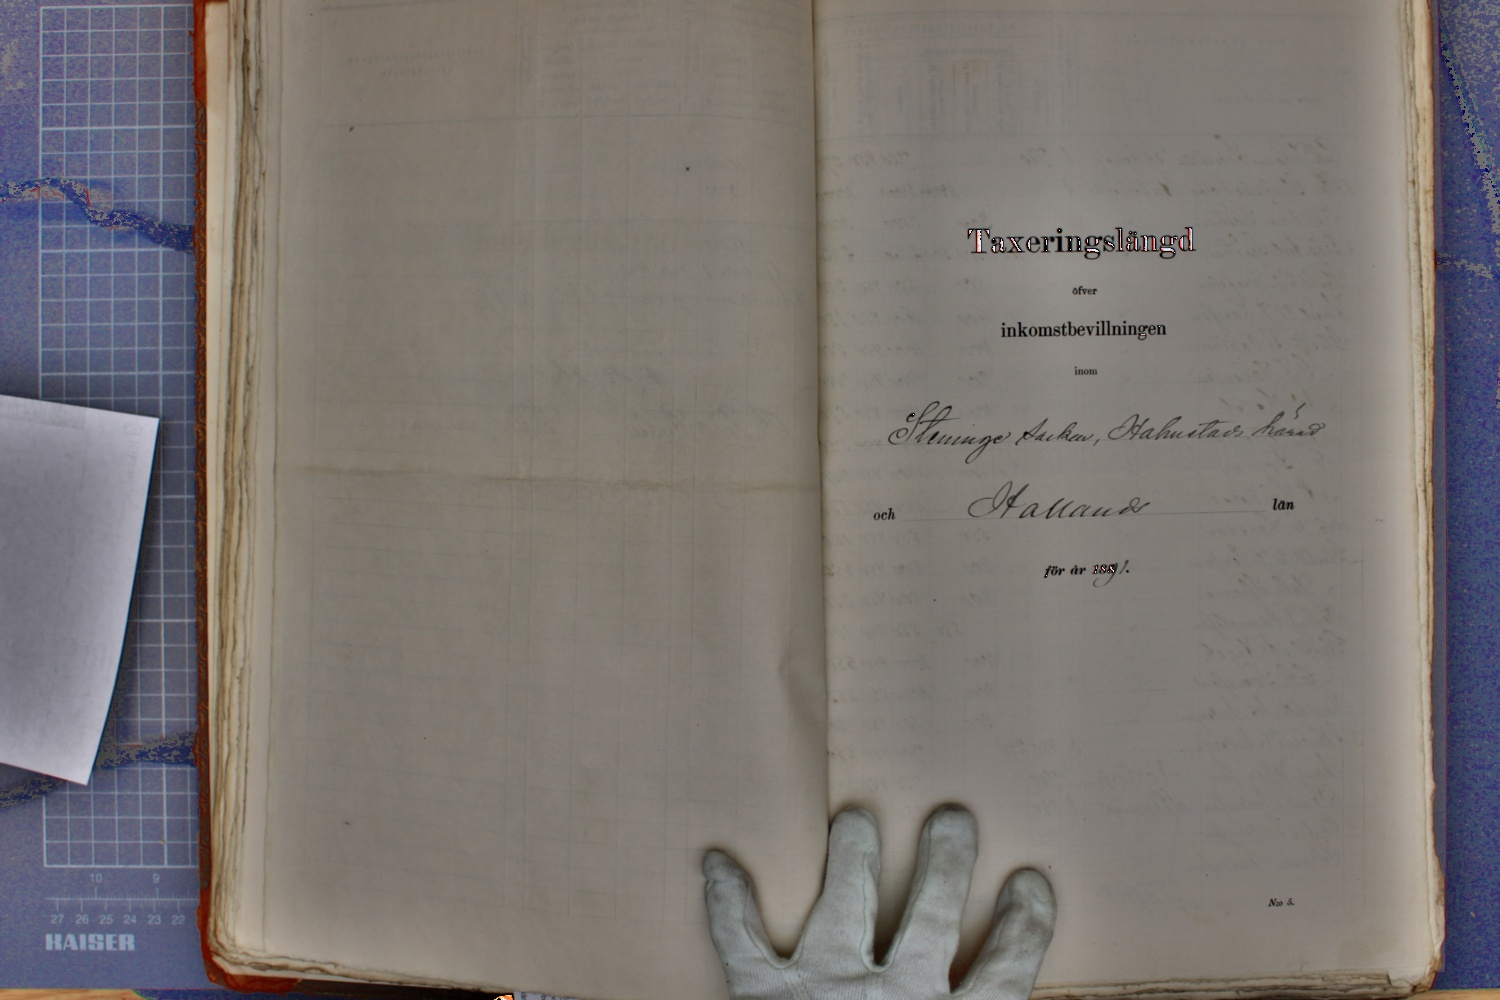 Taxeringslängd
öfver
inkomstbevillningen
inom
Steninge socken, Halmstads härad
och Hallands län
för år 1891.
N:o 5.
10 9
27 26 25 24 23 22
KAISER